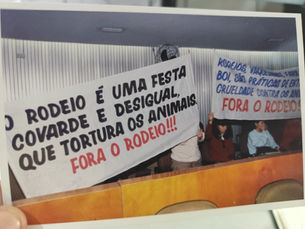 O RODEIO É UMA FESTA
COVARDE E DESIGUAL,
QUE TORTURA OS ANIMAIS.
FORA O RODEIO!!!
BOI, SÃO PRÁTICAS DE
CRUELDADE CONTRA OS
FORA O RODEIO!